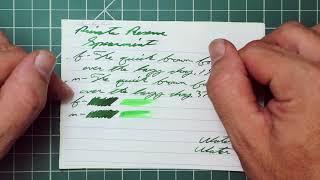 Private Reserve
Spearmint
f- The quick brown fo
over the lazy dog.
m- The quick brown
over the lazy dog.
f-
m-
Wate
Wate